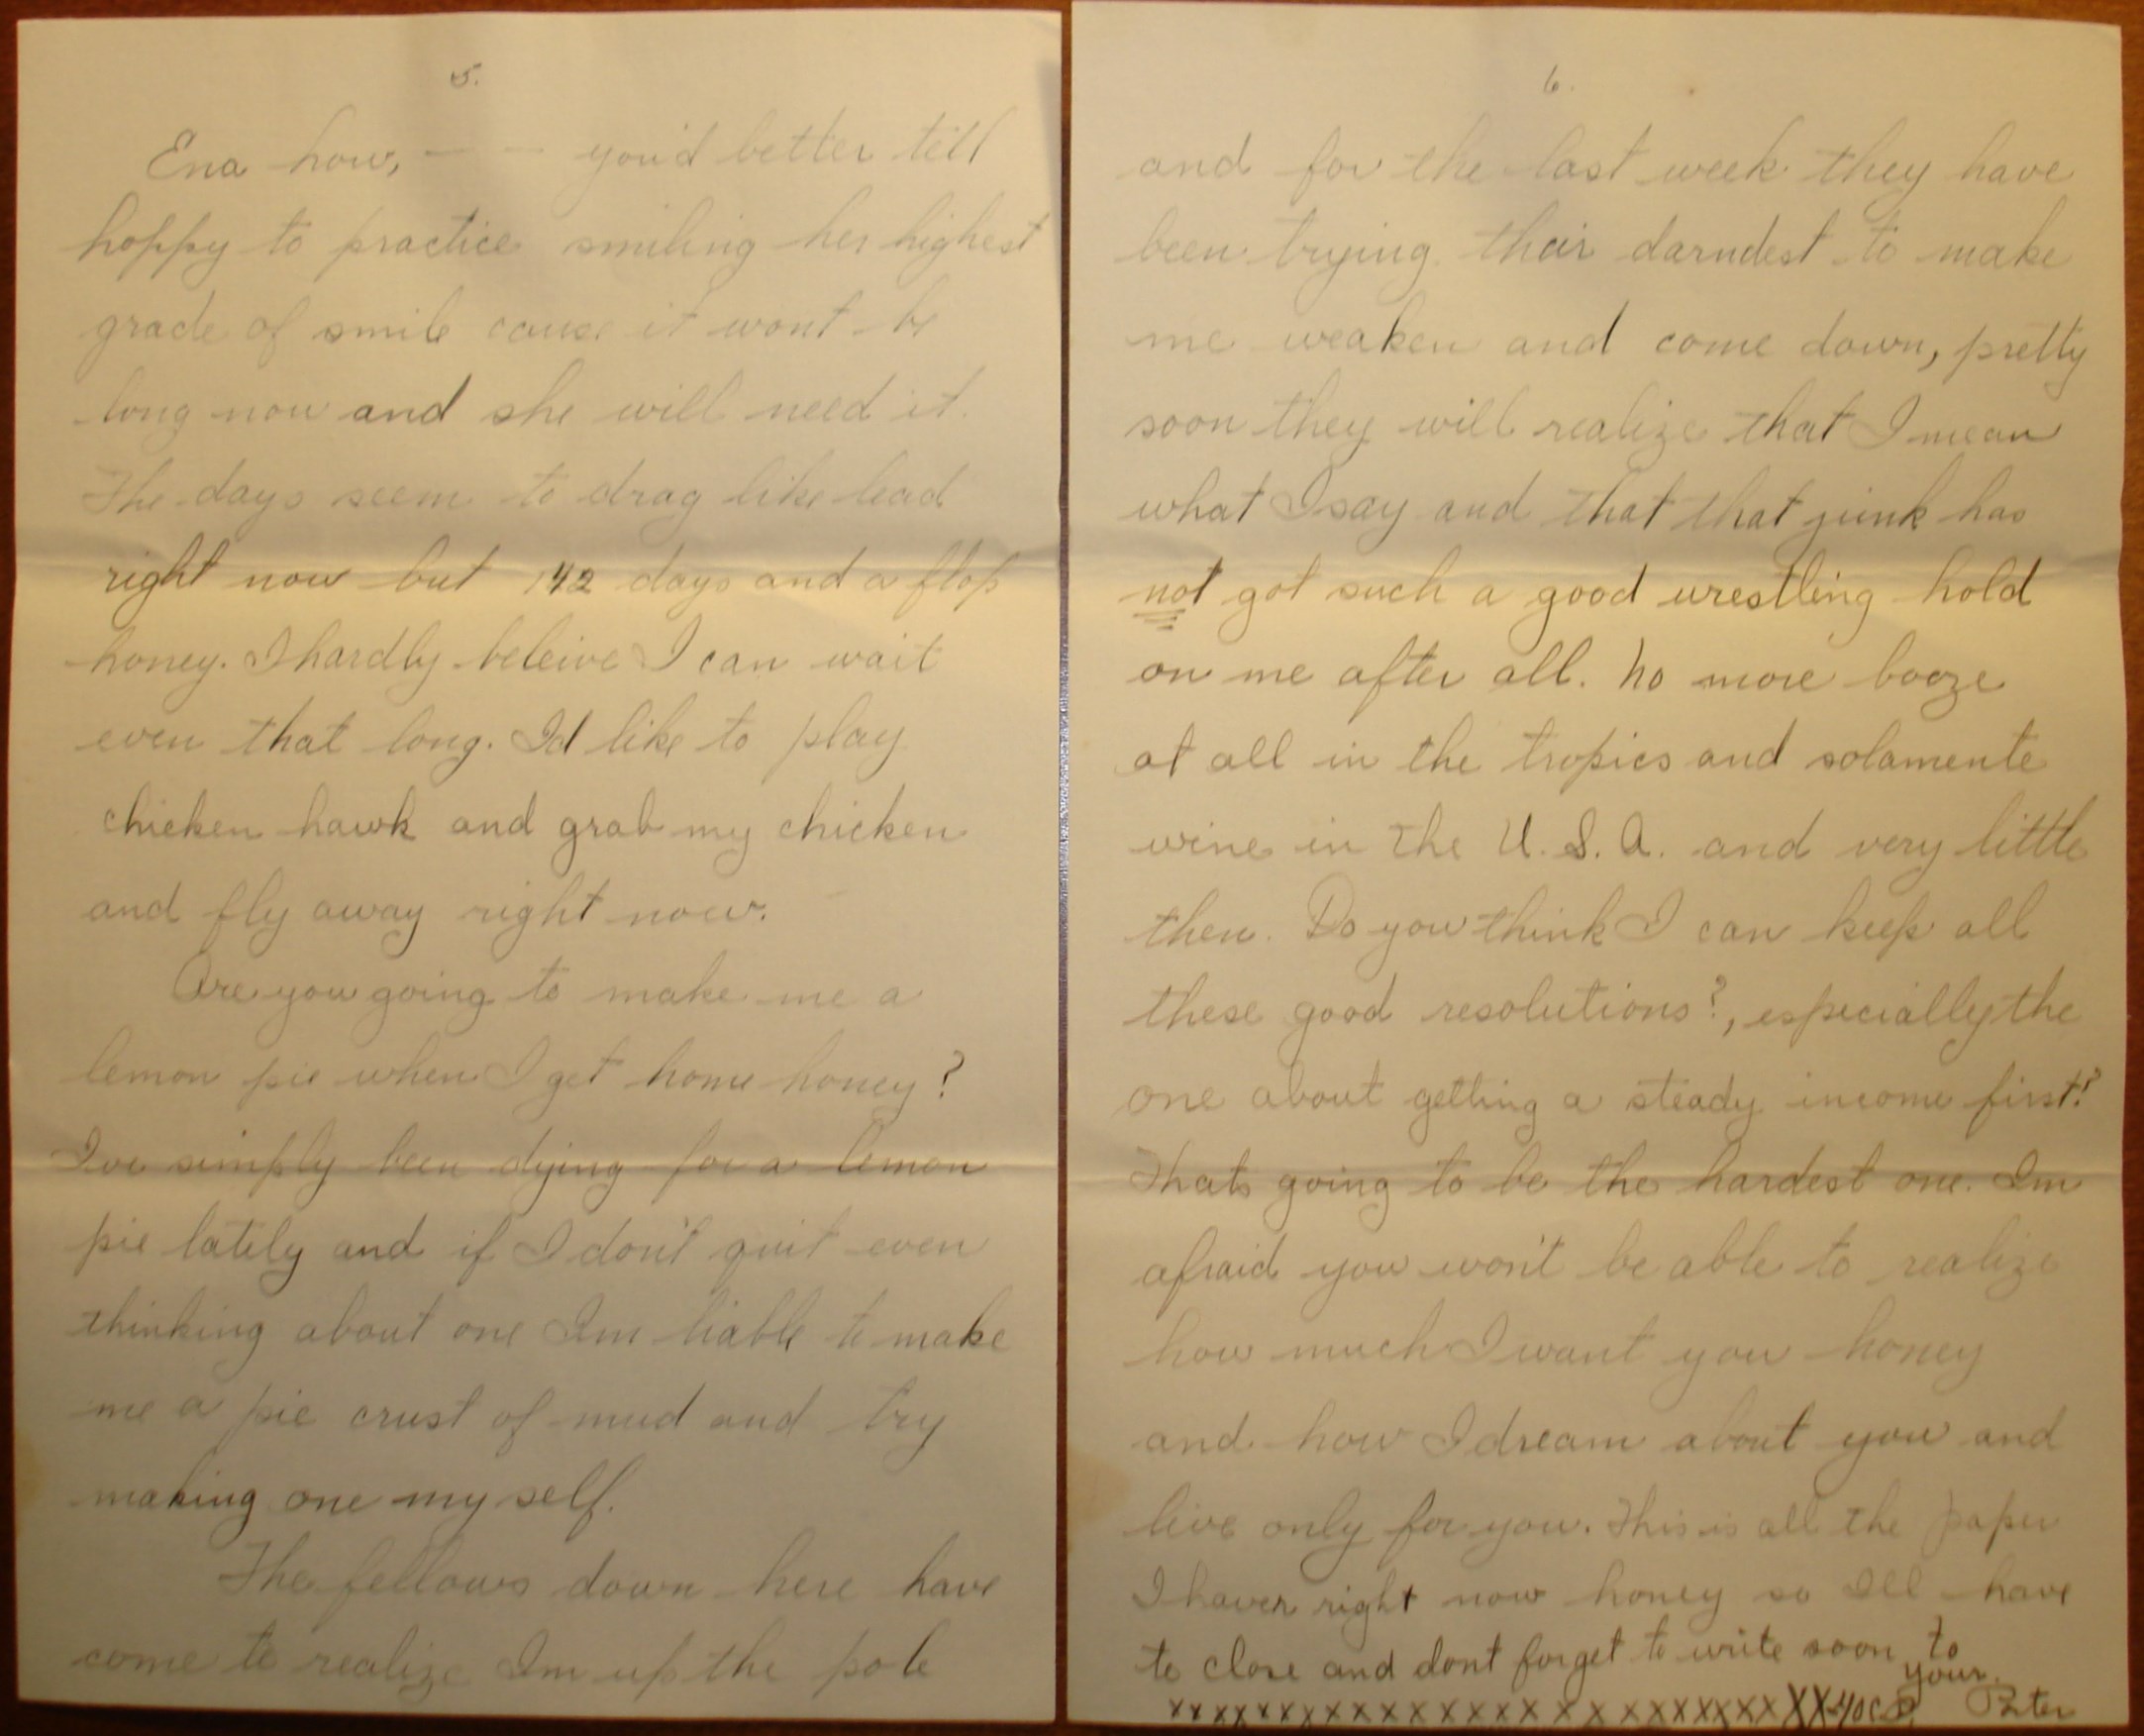 5.
Ena how, — — you'd better tell
hoppy to practice smiling her highest
grade of smile cause it wont be
long now and she will need it.
The days seem to drag like lead
right now but 142 days and a flop
honey. I hardly beleive I can wait
even that long. Id like to play
chicken hawk and grab my chicken
and fly away right now.
Are you going to make me a
lemon pie when I get home honey?
Ive simply been dying for a lemon
pie lately and if I don't quit even
thinking about one Im liable to make
me a pie crust of mud and try
making one my self.
The fellows down here have
come to realize Im up the pole
6.
and for the last week they have
been trying their darndest to make
me weaken and come down, pretty
soon they will realize that I mean
what I say and that that junk has
not got such a good wrestling hold
on me after all. No more booze
at all in the tropics and solamente
wine in the U.S.A. and very little
then. Do you think I can keep all
these good resolutions?, especially the
one about getting a steady income first?
Thats going to be the hardest one. Im
afraid you won't be able to realize
how much I want you honey
and how I dream about you and
live only for you. This is all the paper
I have right now honey so Ill have
to close and dont forget to write soon to
your
xxxxxxxxxxxxxxxxxxxxxxxxxx Peter